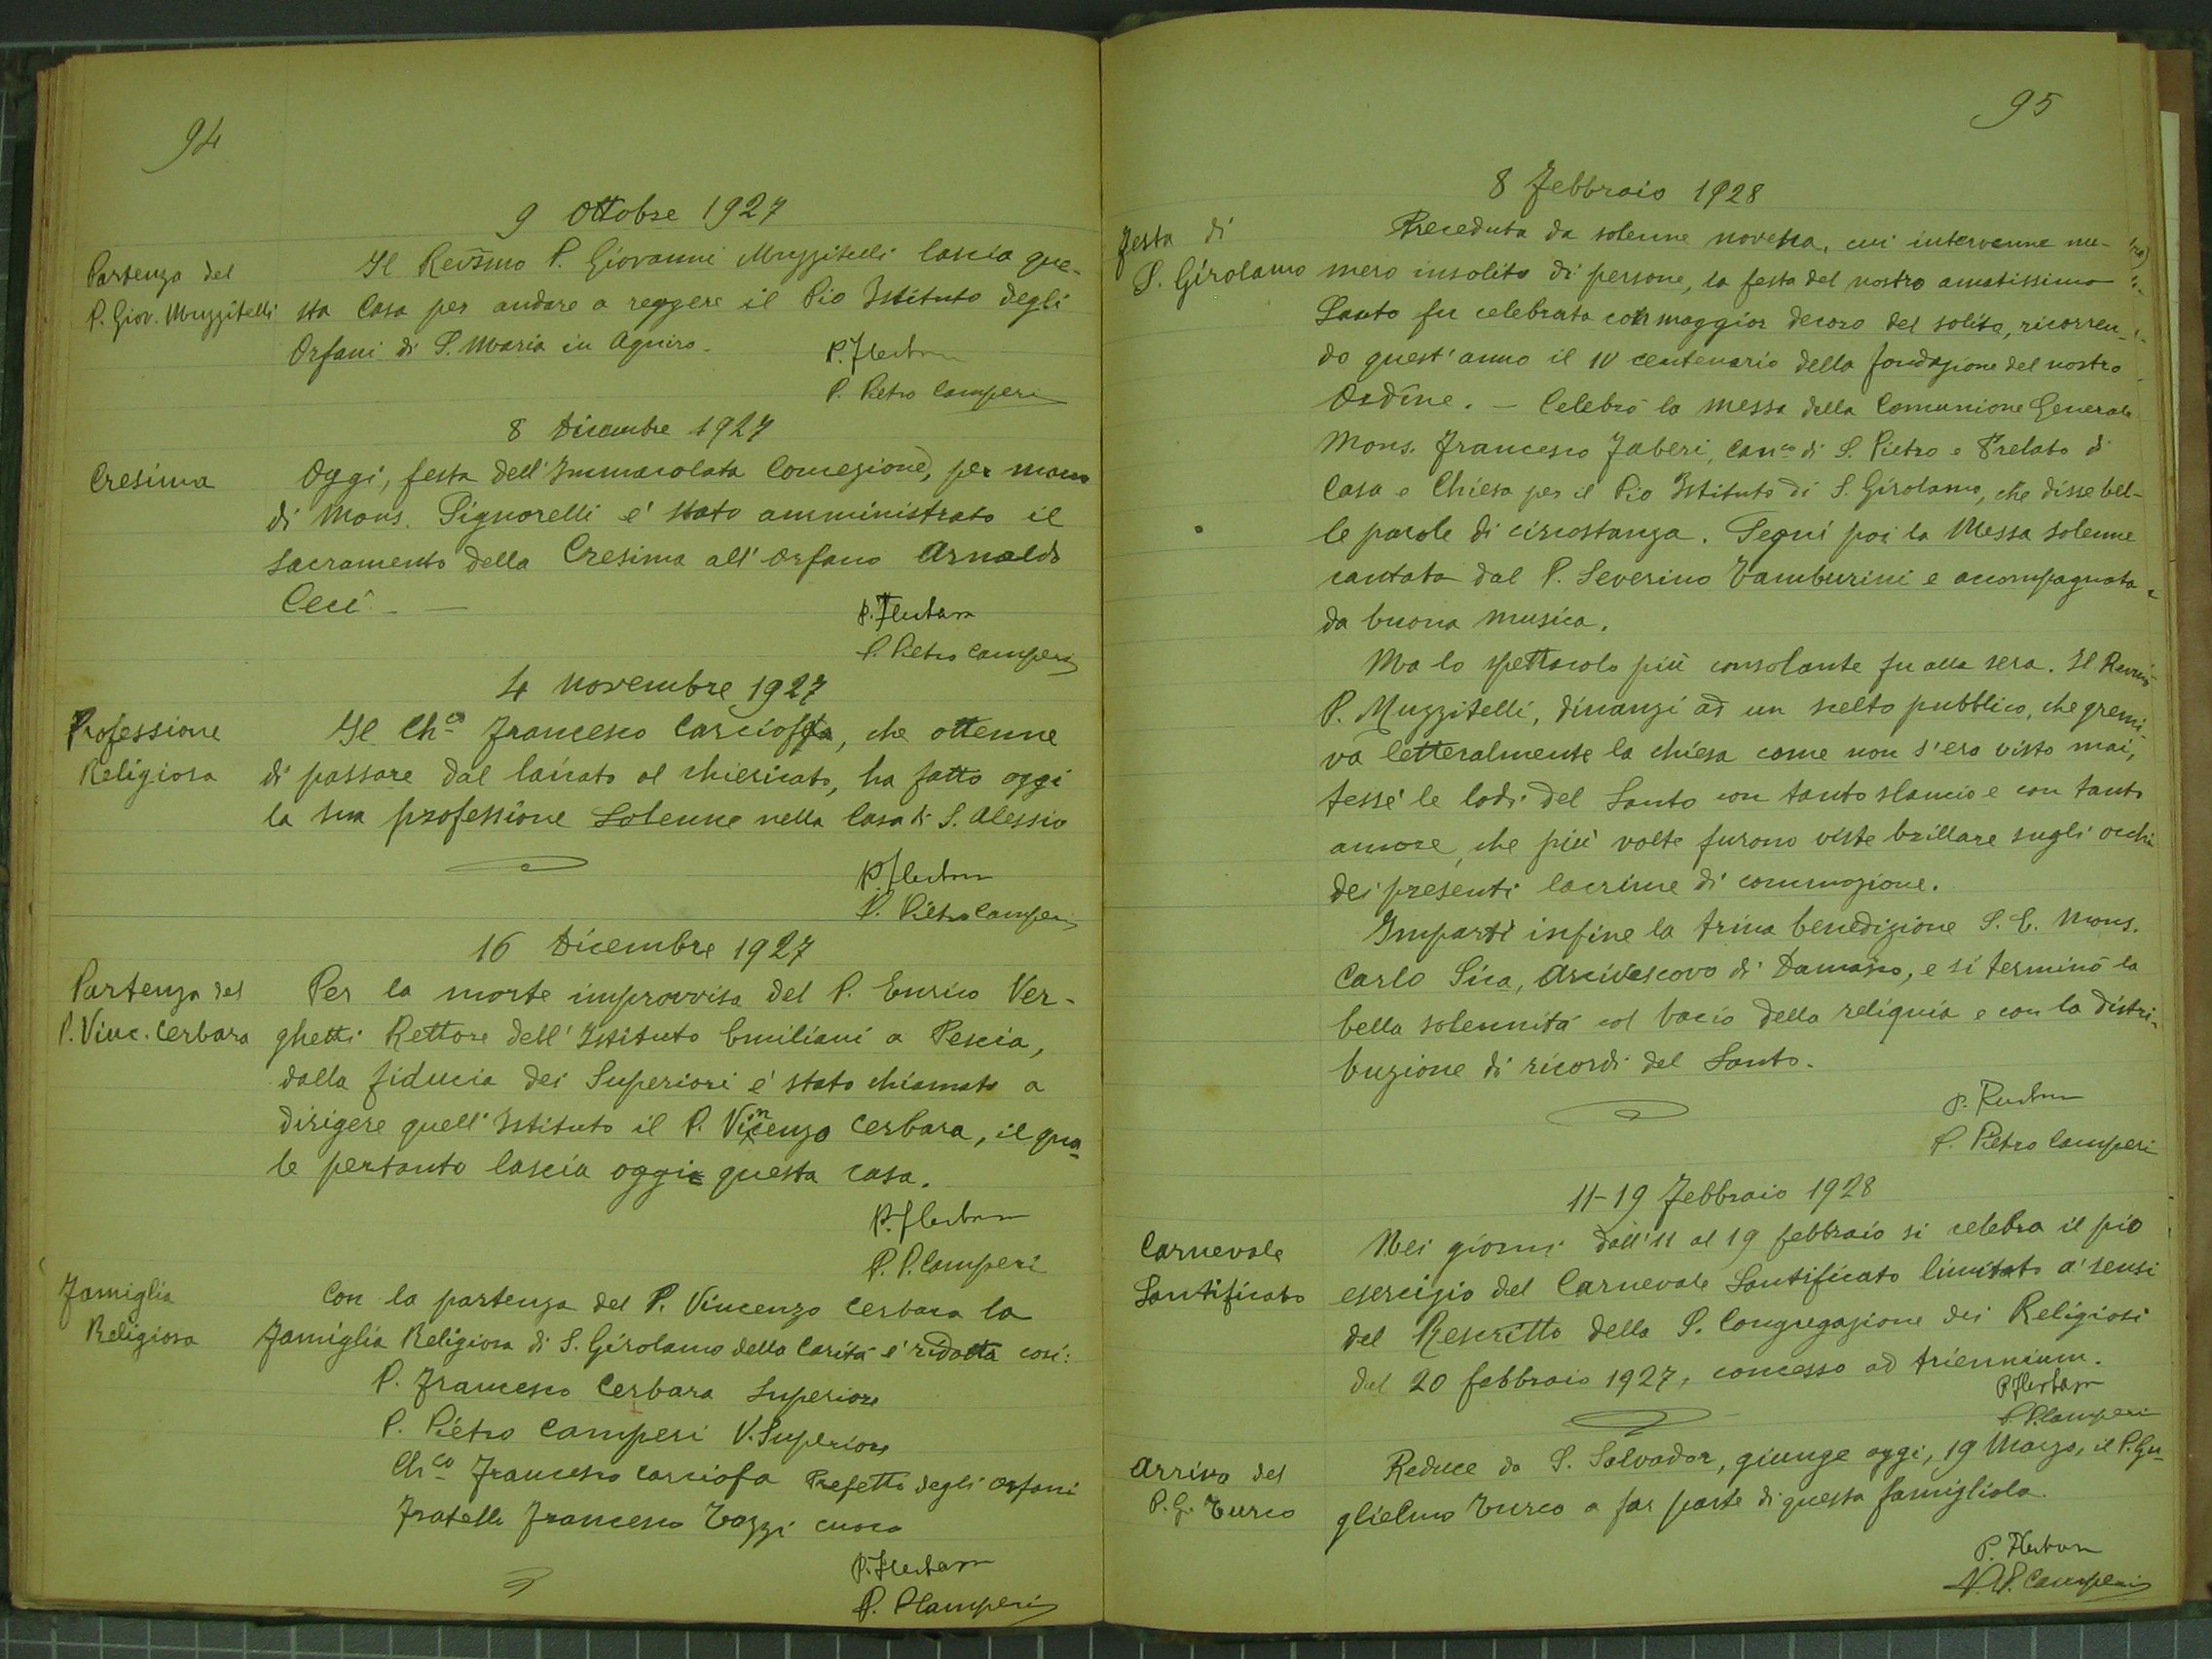 94
9 Ottobre 1927
Partenza del
P. Giov. Muzzitelli
Il Rev̅s̅mo P. Giovanni Muzzitelli lascia que-
sta Casa per andare a reggere il Pio Istituto degli
Orfani di S. Maria in Aquiro.
P. Pietro Camperi
8 Dicembre 1927
Cresima
Oggi, festa dell'Immacolata Concezione, per mano
di Mons. Pignorelli é stato amministrato il
sacramento della Cresima all'orfano Arnaldo
Ceci
P. Pietro Camperi
4 novembre 1927
Professione
Religiosa
Il Ch.co Francesco Carciofa, che ottenne
di passare dal laicato al chiericato, ha fatto oggi
la sua professione solenne nella Casa di S. Alessio
P. Pietro Camperi
16 Dicembre 1927
Partenza del
P. Vinc. Cerbara
Per la morte improvvisa del P. Enrico Ver-
ghetti Rettore dell'Istituto Emiliani a Pescia,
dalla fiducia dei Superiori é stato chiamato a
dirigere quell'Istituto il P. Vincenzo Cerbara, il qua-
le pertanto lascia oggi questa casa.
P. P. Camperi
Famiglia
Religiosa
Con la partenza del P. Vincenzo Cerbara la
Famiglia Religiosa di S. Girolamo della Carità é ridotta così:
P. Francesco Cerbara Superiore
P. Pietro Camperi V. Superiore
Ch.co Francesco Carciofa Prefetto degli orfani
Fratello Francesco Tozzi cuoco
P. P. Camperi
95
8 Febbraio 1928
Festa di
S. Girolamo
Preceduta da solenne novena, cui intervenne nu-
mero insolito di persone, la festa del nostro amatissimo
Santo fu celebrata con maggior decoro del solito, ricorren-
do quest'anno il IV centenario della fondazione del nostro
Ordine. — Celebrò la messa della Comunione Generale
Mons. Francesco Faberi, Can.co di S. Pietro e Prelato di
Casa e Chiesa per il Pio Istituto di S. Girolamo, che disse bel-
le parole di circostanza. Seguì poi la Messa solenne
cantata dal P. Severino Tamburini e accompagnata
da buona musica.
Ma lo spettacolo più consolante fu alla sera. Il Revmo
P. Muzzitelli, dinanzi ad un scelto pubblico, che gremi-
va letteralmente la chiesa come non s'era visto mai,
tessé le lodi del Santo con tanto slancio e con tanto
amore, che più volte furono viste brillare sugli occhi
dei presenti lacrime di commozione.
Impartì infine la trina benedizione S. E. Mons.
Carlo Sica, Arcivescovo di Damasco, e si terminò la
bella solennità col bacio della reliquia e con la distri-
buzione di ricordi del Santo.
P. Pietro Camperi
11-19 Febbraio 1928
Carnevale
Santificato
Nei giorni dall'11 al 19 febbraio si celebra il pio
esercizio del Carnevale Santificato limitato a' sensi
del Rescritto della S. Congregazione dei Religiosi
del 20 febbraio 1927, concesso ad triennium.
P. P. Camperi
Arrivo del
P. G. Turco
Reduce da S. Salvador, giunge oggi, 19 Marzo, il P. Gu-
glielmo Turco a far parte di questa famigliola.
P. P. Camperi